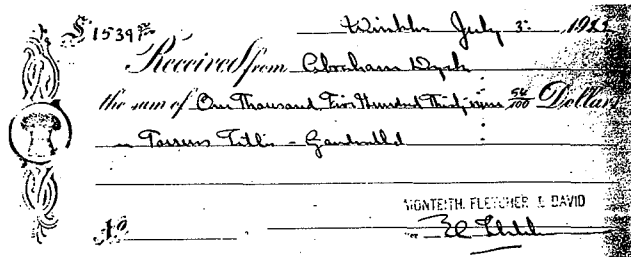 $1539 54/100 Winkler July 3. 1922
Received from Abraham Dyck
the sum of One Thousand Five Hundred Thirty nine 54/100 Dollars
Torrens Title
No
MONTEITH, FLETCHER & DAVID